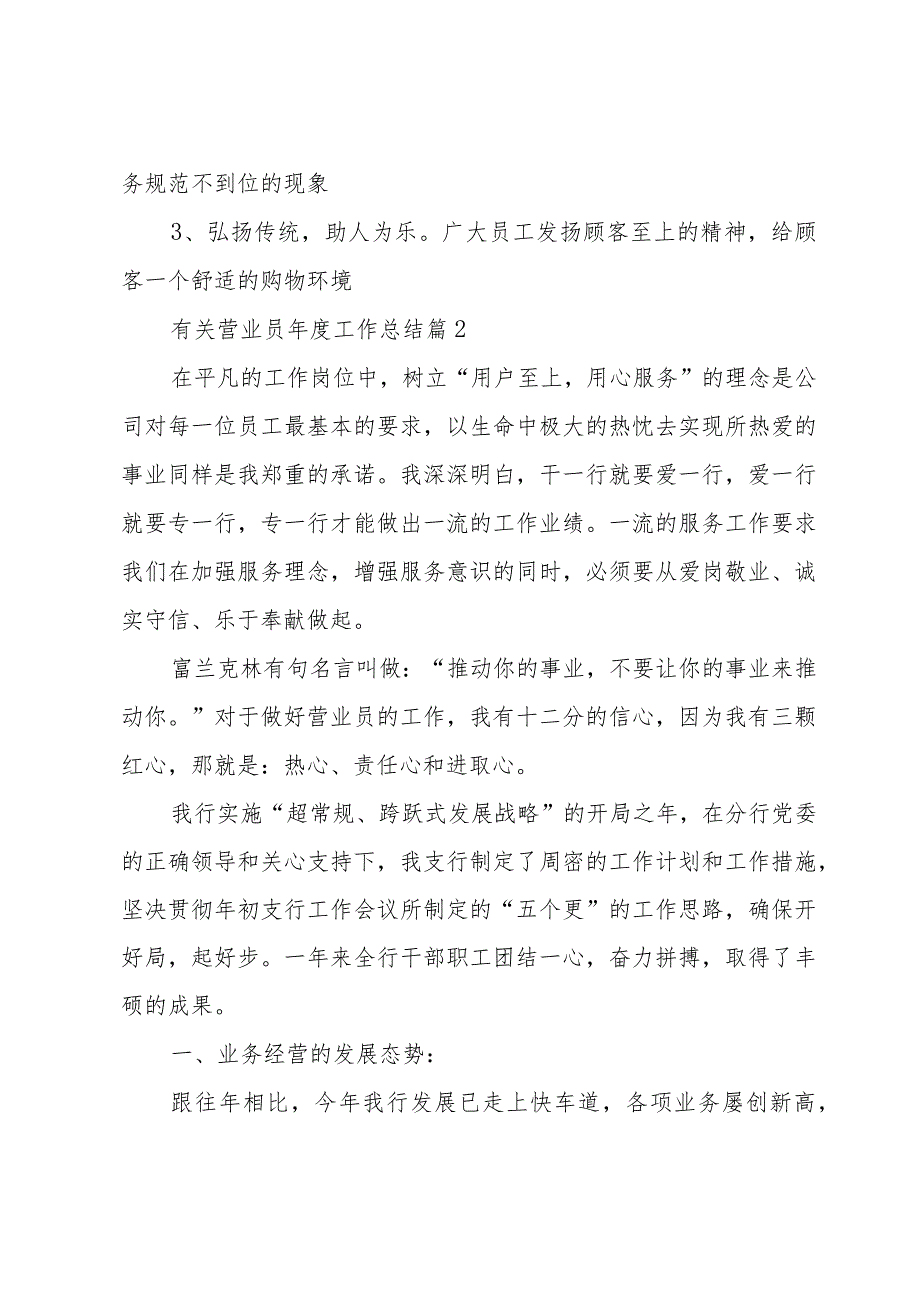 务规范不到位的现象
3、弘扬传统，助人为乐。广大员工发扬顾客至上的精神，给顾
客一个舒适的购物环境
有关营业员年度工作总结篇2
在平凡的工作岗位中，树立“用户至上，用心服务”的理念是公
司对每一位员工最基本的要求，以生命中极大的热忱去实现所热爱的
事业同样是我郑重的承诺。我深深明白，干一行就要爱一行，爱一行
就要专一行，专一行才能做出一流的工作业绩。一流的服务工作要求
我们在加强服务理念，增强服务意识的同时，必须要从爱岗敬业、诚
实守信、乐于奉献做起。
富兰克林有句名言叫做：“推动你的事业，不要让你的事业来推
动你。”对于做好营业员的工作，我有十二分的信心，因为我有三颗
红心，那就是：热心、责任心和进取心。
我行实施“超常规、跨跃式发展战略”的开局之年，在分行党委
的正确领导和关心支持下，我支行制定了周密的工作计划和工作措施，
坚决贯彻年初支行工作会议所制定的“五个更”的工作思路，确保开
好局，起好步。一年来全行干部职工团结一心，奋力拼搏，取得了丰
硕的成果。
一、业务经营的发展态势：
跟往年相比，今年我行发展已走上快车道，各项业务屡创新高，